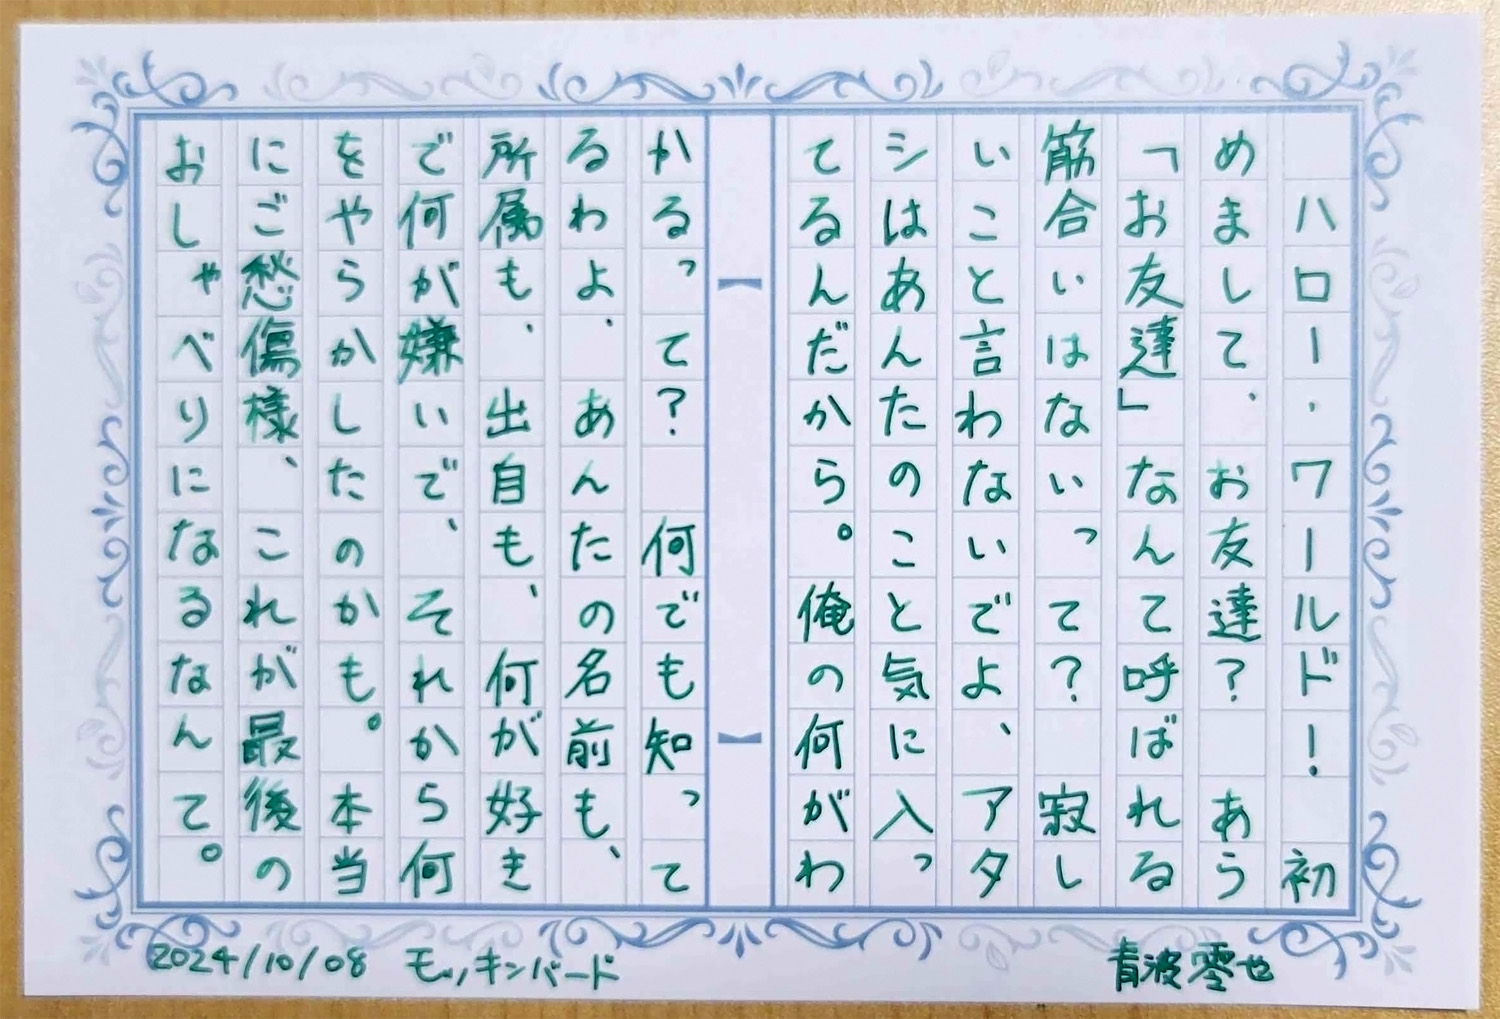 ハロー・ワールド!　初
めまして、お友達?　あら
「お友達」なんて呼ばれる
筋合いはないって?　寂し
いこと言わないでよ、アタ
シはあんたのこと気に入っ
てるんだから。俺の何がわ
かるって?　何でも知って
るわよ、あんたの名前も、
所属も、出自も、何が好き
で何が嫌いで、それから何
をやらかしたのかも。本当
にご愁傷様、これが最後の
おしゃべりになるなんて。
青波零也
2024/10/08 モッキンバード